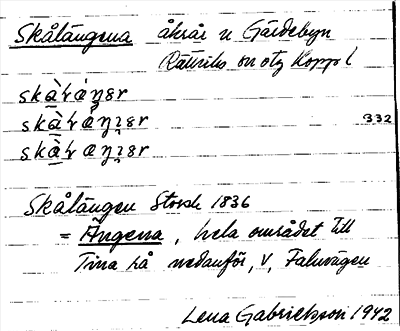 Skålängena åkrar n Gärdebyn
Rättviks sn otg Kopp l
skàlàŋɜr
skàlàŋɪɜr 332
skàlæŋɪɜr
Skålängen Storsk 1836
= Ängena, hela området till
Tina på nedanför, V, Faluvägen
Lena Gabrielsson 1942